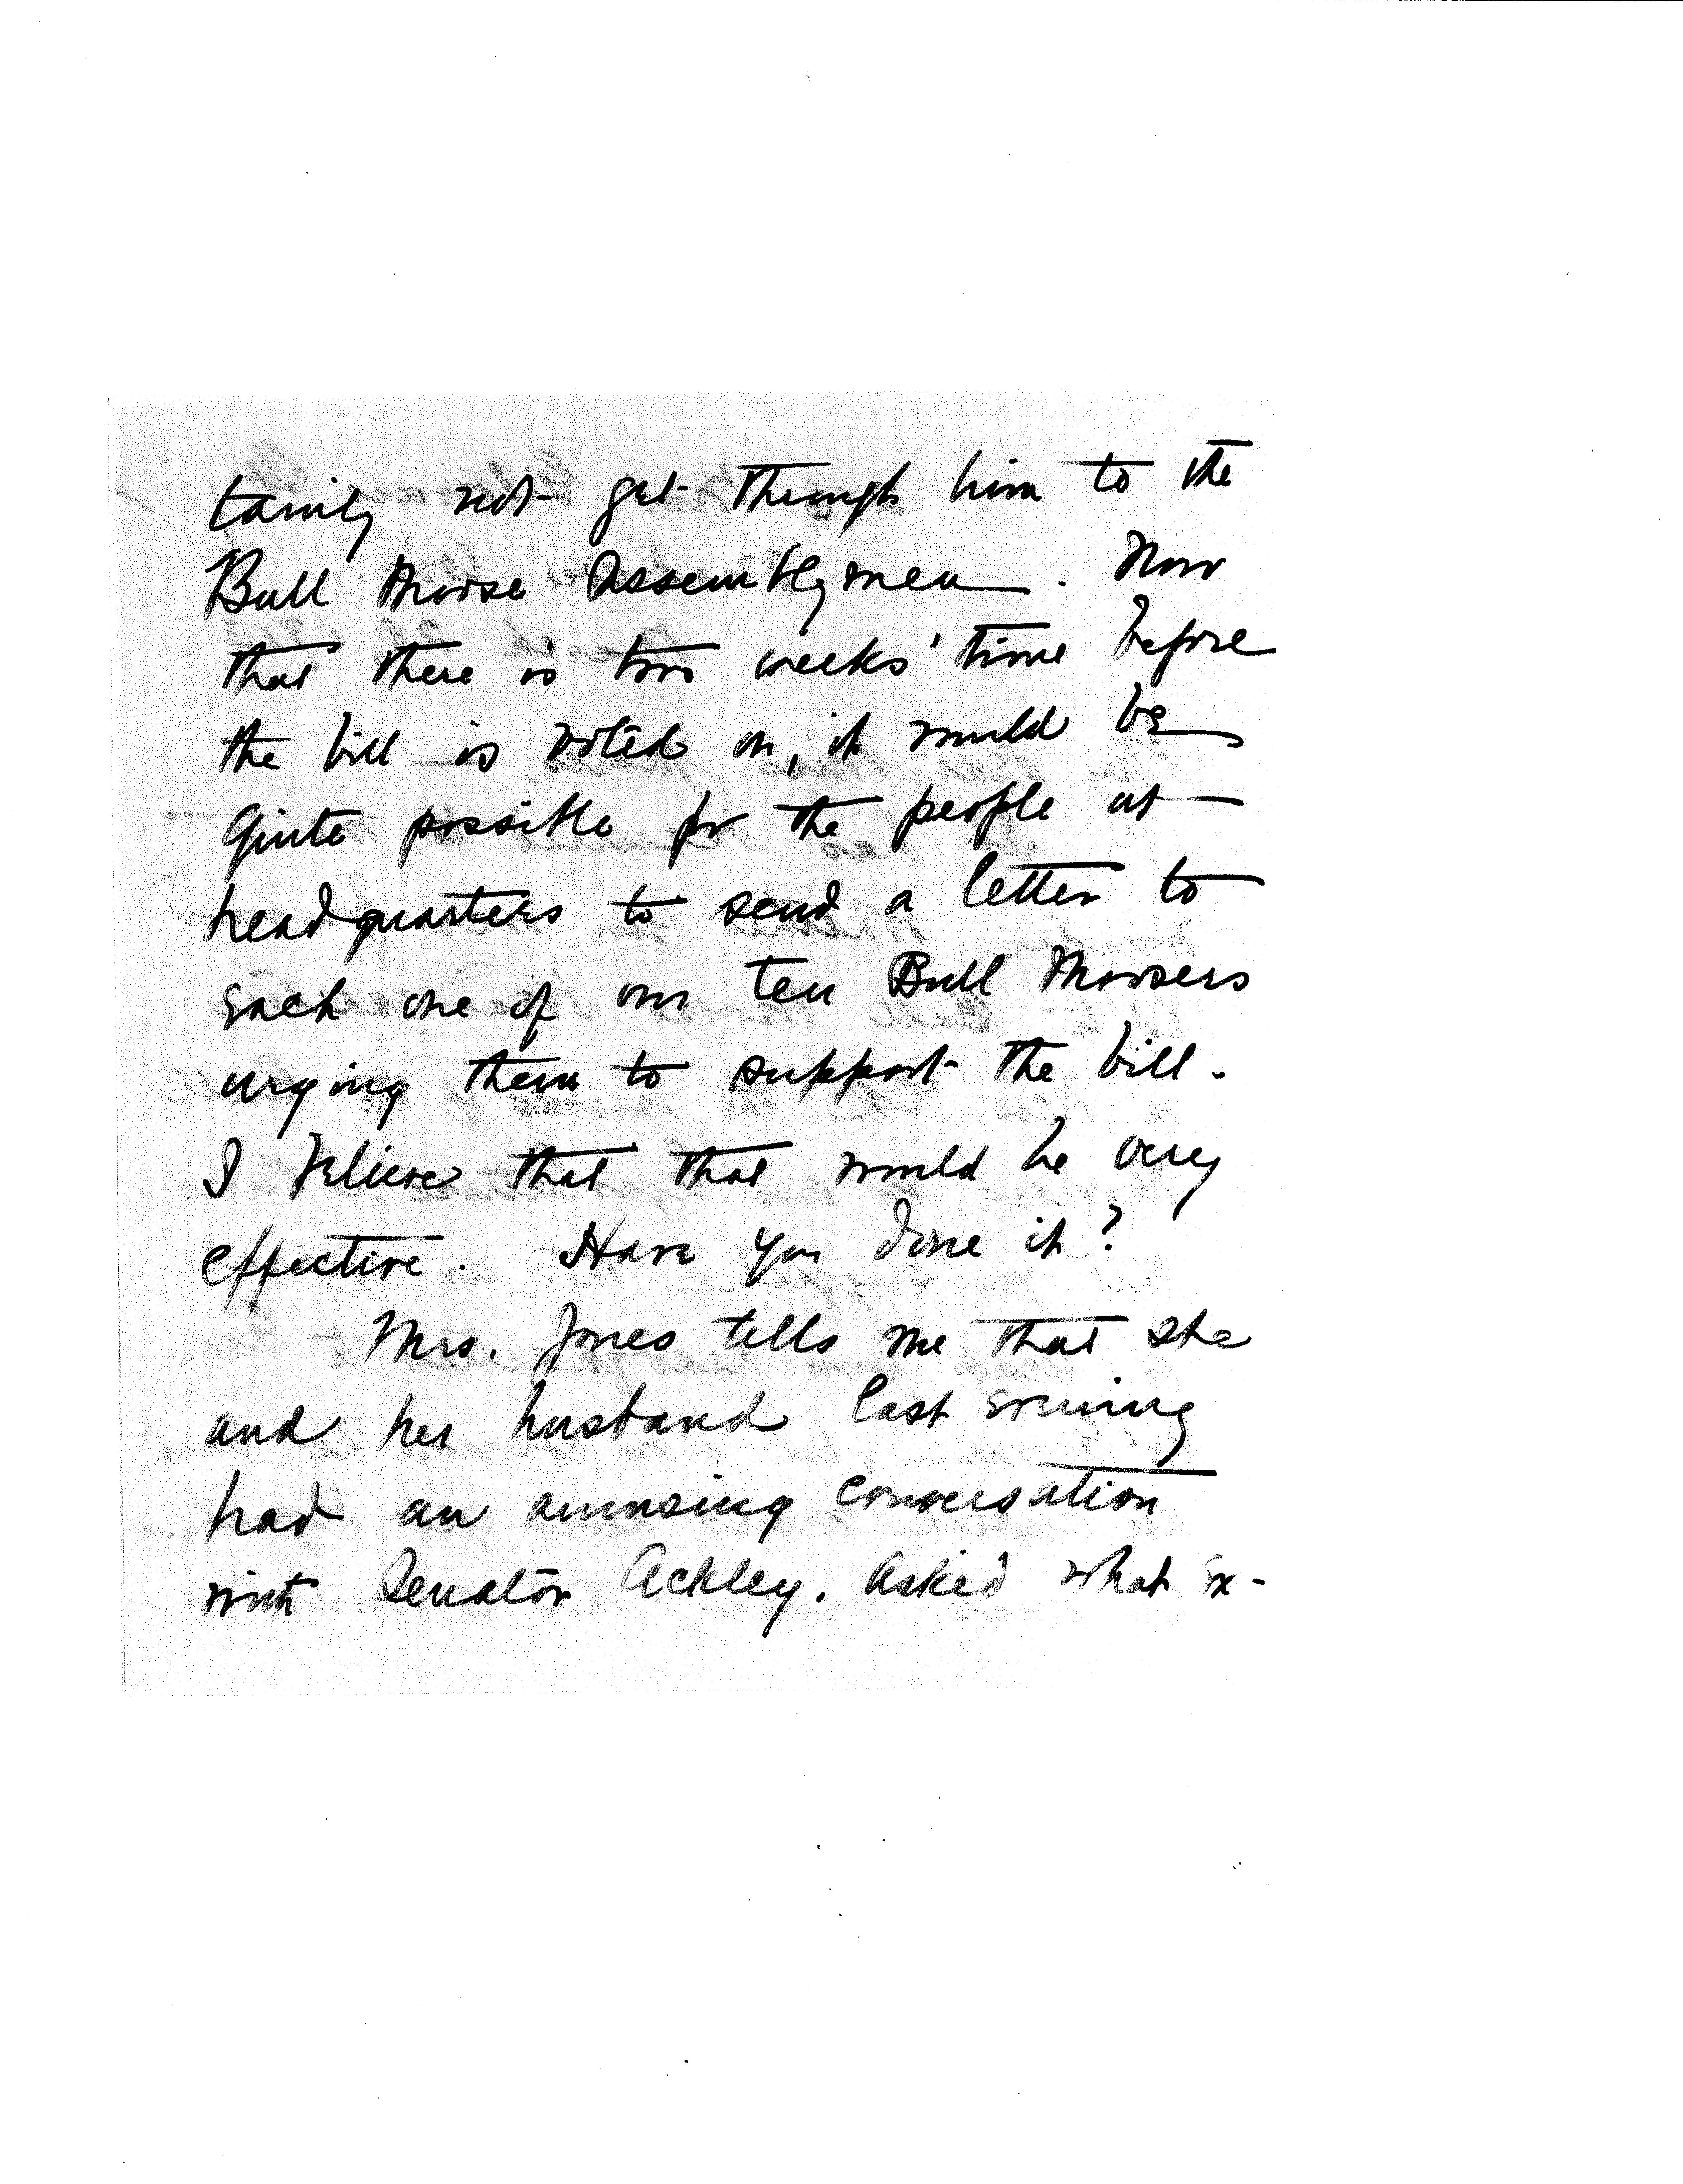 tainly not get through him to the
Bull Moose Assemblymen. Now
that there is two weeks' time before
the bill is voted on, it would be
quite possible for the people at
headquarters to send a letter to
each one of our ten Bull Moosers
urging them to support the bill.
I believe that that would be very
effective. Have you done it?
Mrs. Jones tells me that she
and her husband last evening
had an amusing conversation
with Senator Ackley. Asked what ex-